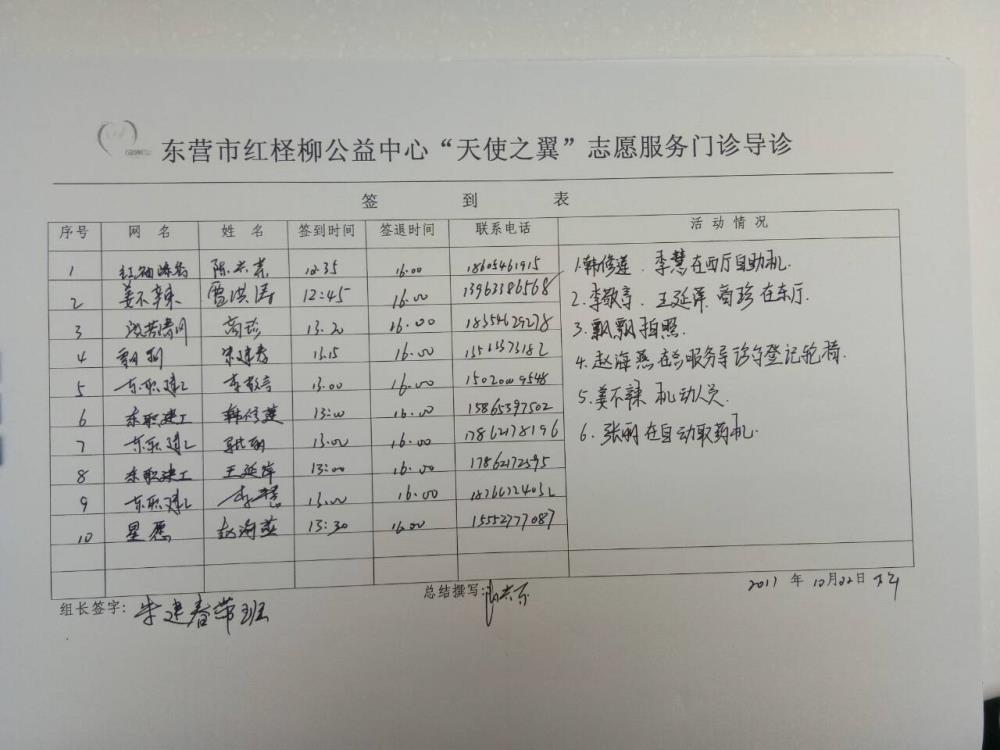 东营市红柽柳公益中心“天使之翼”志愿服务门诊导诊
签 到 表
序号 网 名 姓 名 签到时间 签退时间 联系电话 活动情况
1 12:35 16.00 18605461915
2 姜不辣 雷洪涛 12:45 16.00 13963386568
3 商珍 13.20 16.00 18354629278
4 飘飘 宋建春 13.15 16.00
5 东职建工 李敬亭 13.00 16.00
6 东职建工 韩修莲 13:00 16.00 15865397502
7 东职建工 张丽 13.00 16.00 17862178196
8 东职建工 王延萍 13:00 16.00 17862172595
9 东职建工 李慧 13.00 16.00
10 星愿 赵海燕 13:30 16.00 15552777087
1.韩修莲、李慧在西厅自助机.
2.李敬亭、王延萍 商珍 在东厅.
3.飘飘拍照.
4.赵海燕在总服务导诊台登记轮椅.
5.姜不辣 机动人员.
6.张丽在自动取药机.
组长签字: 宋建春带班
总结撰写:
2017 年 10月22日 下午